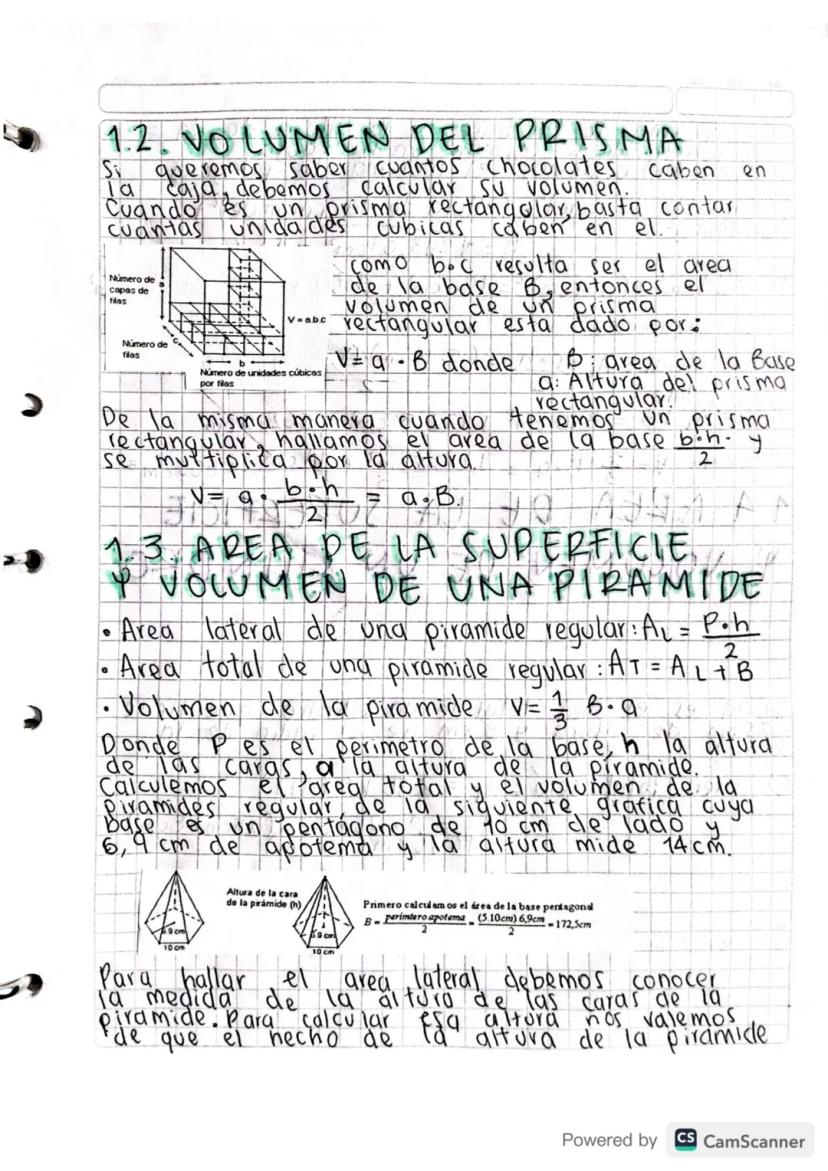 1.2. VOLUMEN DEL PRISMA
Si queremos saber cuantos chocolates caben en
la caja, debemos calcular su volumen.
Cuando es un prisma rectangular, basta contar
cuantas unidades cubicas caben en el.
Número de
capas de
filas
a
c
b
Número de
filas
Número de unidades cúbicas
por filas
V = a.b.c
como b.c resulta ser el area
de la base B, entonces el
volumen de un prisma
rectangular esta dado por:
V = a · B donde B: area de la Base
a: Altura del prisma
rectangular.
De la misma manera cuando tenemos un prisma
rectangular, hallamos el area de la base b·h/2 y
se multiplica por la altura.
V = a · b·h/2 = a.B.
1.3. AREA DE LA SUPERFICIE
Y VOLUMEN DE UNA PIRAMIDE
• Area lateral de una piramide regular: AL = P·h/2
• Area total de una piramide regular: AT = AL + B
• Volumen de la piramide V = 1/3 B·a
Donde P es el perimetro de la base, h la altura
de las caras, a la altura de la piramide.
Calculemos el area total y el volumen de la
piramides regular de la siguiente grafica cuya
base es un pentágono de 10 cm de lado y
6,9 cm de apotema y la altura mide 14 cm.
6.9 cm
10 cm
Altura de la cara
de la pirámide (h)
6.9 cm
10 cm
Primero calculamos el área de la base pentagonal
B = perímtero apotema/2 = (5.10cm) 6,9cm/2 = 172,5cm
Para hallar el area lateral debemos conocer
la medida de la altura de las caras de la
piramide. Para calcular esa altura nos valemos
de que el hecho de la altura de la piramide
Powered by CS CamScanner